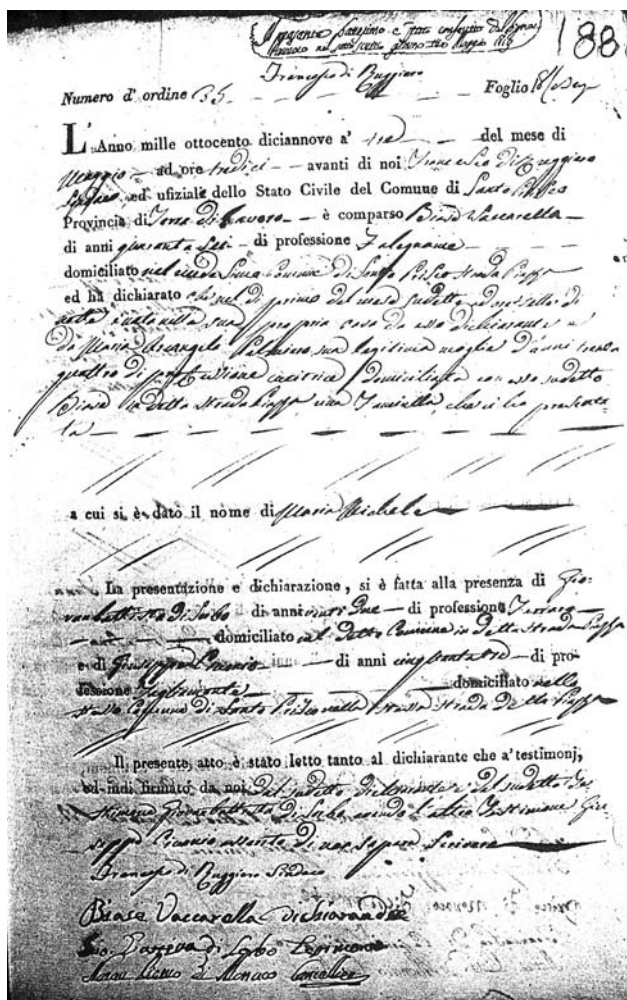 Il presente
188
Francesco di Ruggiero
Numero d' ordine 35 Foglio 18
L'Anno mille ottocento diciannove a' tre del mese di
Maggio ad ore tredici avanti di noi Francesco di Ruggiero
Sindaco ed ufiziale dello Stato Civile del Comune di Santo Prisco
Provincia di Terra di Lavoro è comparso Biase Vaccarella
di anni quaranta sei di professione Falegname
domiciliato nel Comune di Santo Prisco strada Piazza
ed ha dichiarato che nel dì primo del mese sudetto ad ore sette di
notte è nata nella sua propria casa da esso dichiarante e
da Maria Arcangela Palmiero sua legitima moglie d'anni trenta
quattro di professione cucitrice domiciliata con esso sudetto
Biase in detta strada Piazza una Fanciulla che ci ha presenta
ta
a cui si è dato il nome di Maria Michele
La presentazione e dichiarazione, si è fatta alla presenza di Gio:
vanbattista di Sorbo di anni venti due di professione Ferraro
domiciliato nel detto Comune in detta strada Piazza
e di Giuseppe di anni cinquantatre di pro-
fessione domiciliato nello
stesso Comune di Santo Prisco nella stessa strada della Piazza
Il presente atto è stato letto tanto al dichiarante che a' testimonj,
ed indi firmato da noi dal sudetto dichiarante e dal sudetto Te
stimone Giovanbattista di Sorbo avendo l'altro Testimone Giu
seppe asserito di non sapere scrivere
Francesco di Ruggiero Sindaco
Biase Vaccarella dichiarante
Gio: Battista di Sorbo Testimone
di Monaco Cancelliere